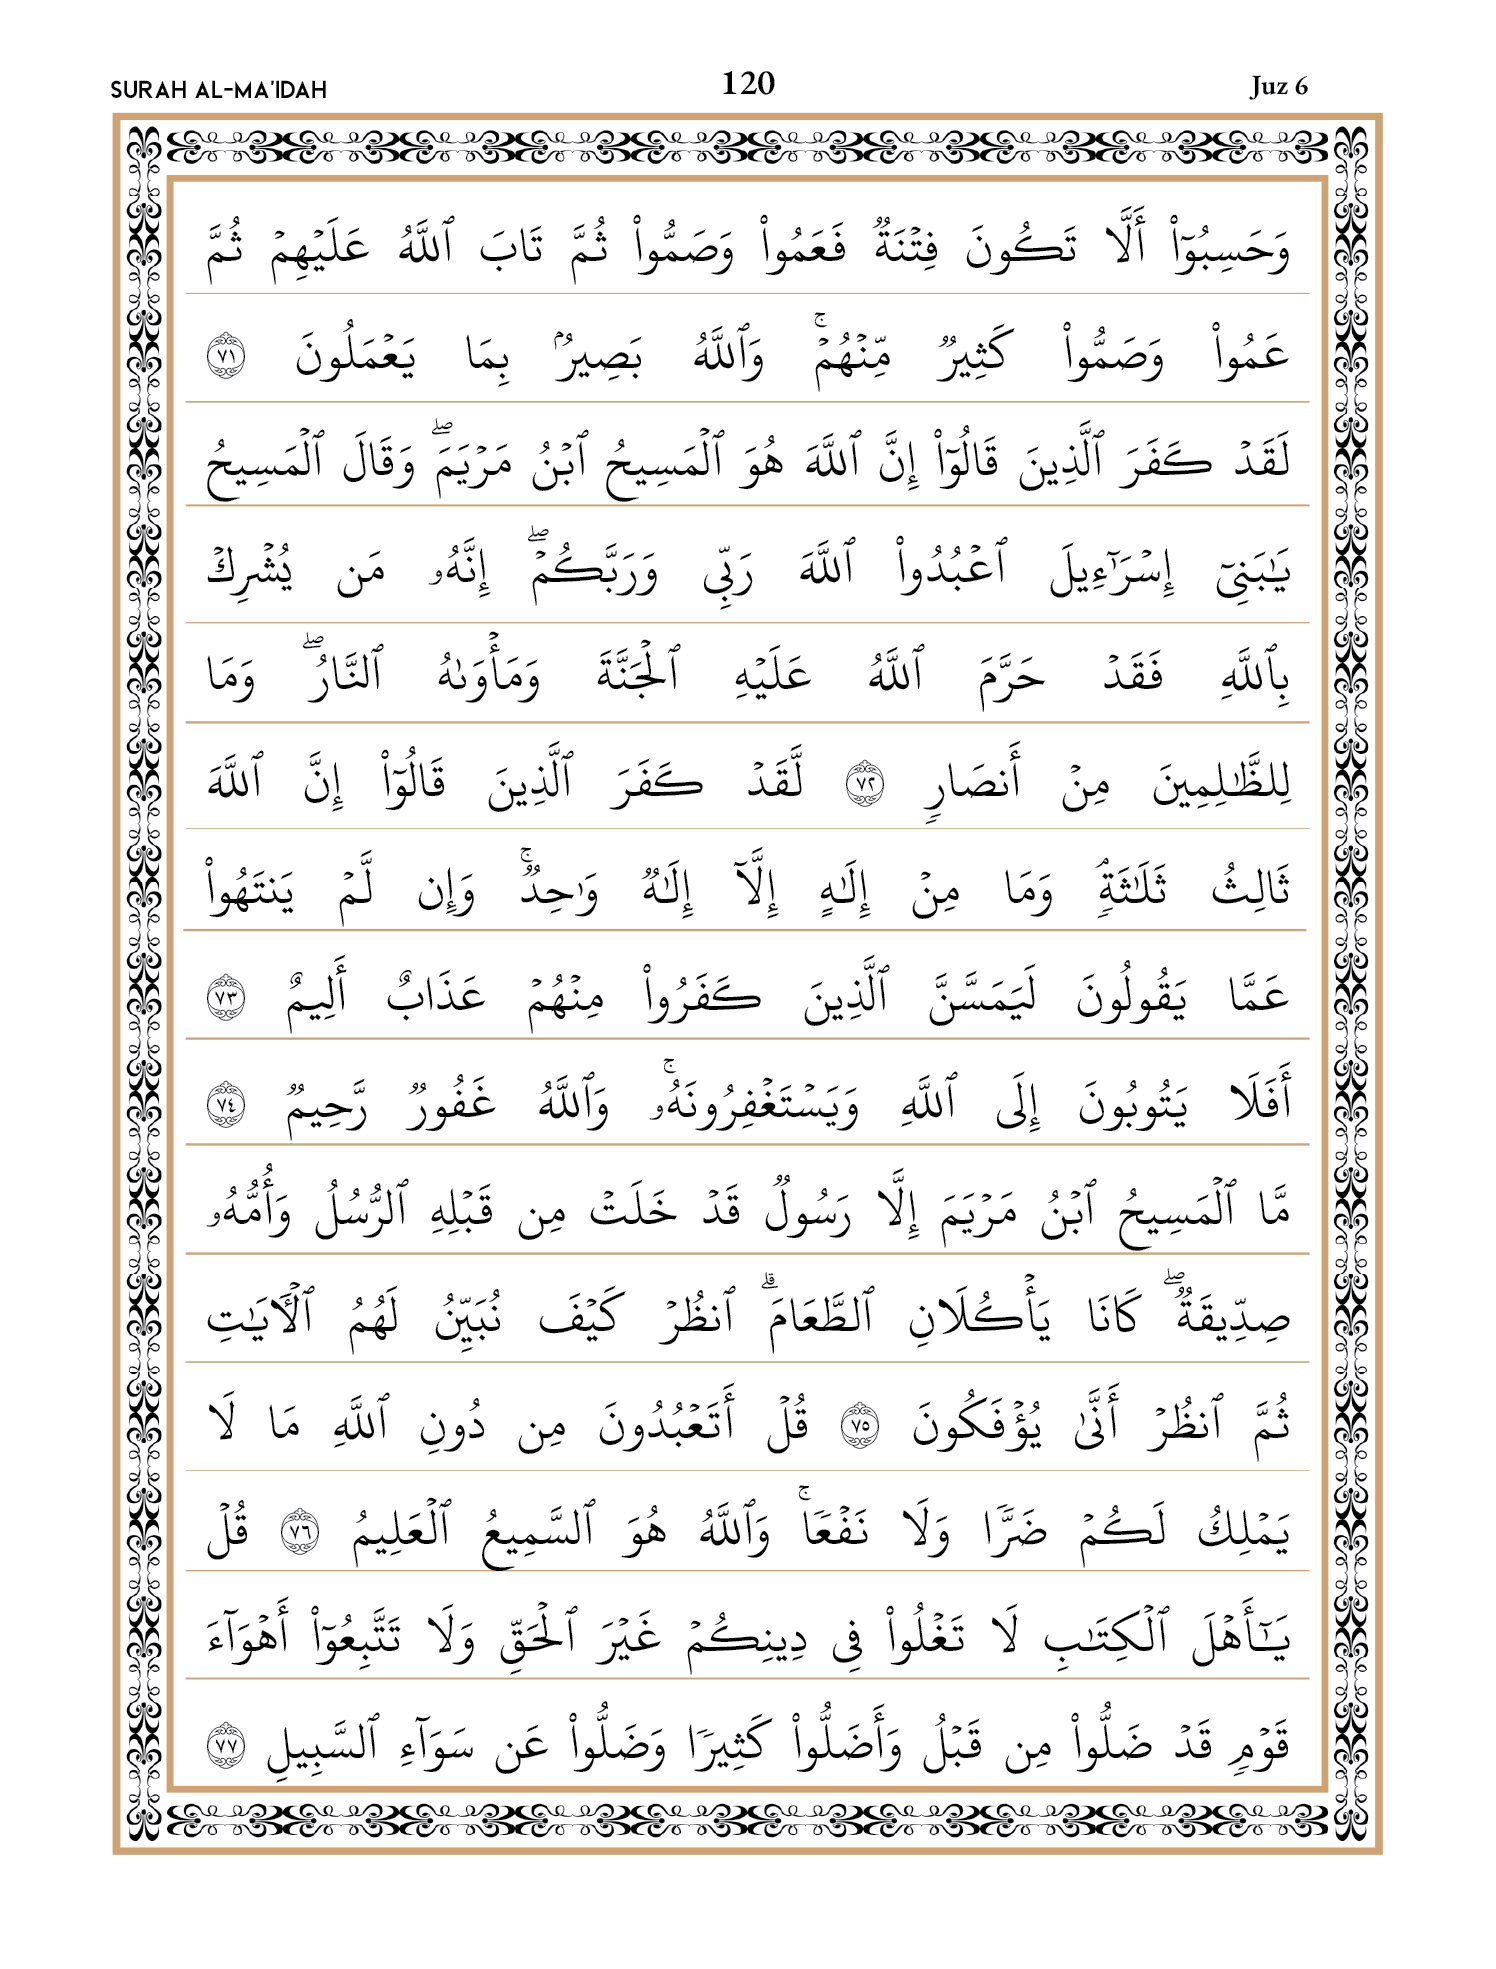 SURAH AL-MA'IDAH 120 Juz 6
وَحَسِبُوٓا۟ أَلَّا تَكُونَ فِتْنَةٌ فَعَمُوا۟ وَصَمُّوا۟ ثُمَّ تَابَ ٱللَّهُ عَلَيْهِمْ ثُمَّ
عَمُوا۟ وَصَمُّوا۟ كَثِيرٌ مِّنْهُمْ ۚ وَٱللَّهُ بَصِيرٌۢ بِمَا يَعْمَلُونَ ٧١
لَقَدْ كَفَرَ ٱلَّذِينَ قَالُوٓا۟ إِنَّ ٱللَّهَ هُوَ ٱلْمَسِيحُ ٱبْنُ مَرْيَمَ ۖ وَقَالَ ٱلْمَسِيحُ
يَـٰبَنِىٓ إِسْرَٰٓءِيلَ ٱعْبُدُوا۟ ٱللَّهَ رَبِّى وَرَبَّكُمْ ۖ إِنَّهُۥ مَن يُشْرِكْ
بِٱللَّهِ فَقَدْ حَرَّمَ ٱللَّهُ عَلَيْهِ ٱلْجَنَّةَ وَمَأْوَىٰهُ ٱلنَّارُ ۖ وَمَا
لِلظَّـٰلِمِينَ مِنْ أَنصَارٍ ٧٢ لَّقَدْ كَفَرَ ٱلَّذِينَ قَالُوٓا۟ إِنَّ ٱللَّهَ
ثَالِثُ ثَلَـٰثَةٍ ۘ وَمَا مِنْ إِلَـٰهٍ إِلَّآ إِلَـٰهٌ وَٰحِدٌ ۚ وَإِن لَّمْ يَنتَهُوا۟
عَمَّا يَقُولُونَ لَيَمَسَّنَّ ٱلَّذِينَ كَفَرُوا۟ مِنْهُمْ عَذَابٌ أَلِيمٌ ٧٣
أَفَلَا يَتُوبُونَ إِلَى ٱللَّهِ وَيَسْتَغْفِرُونَهُۥ ۚ وَٱللَّهُ غَفُورٌ رَّحِيمٌ ٧٤
مَّا ٱلْمَسِيحُ ٱبْنُ مَرْيَمَ إِلَّا رَسُولٌ قَدْ خَلَتْ مِن قَبْلِهِ ٱلرُّسُلُ وَأُمُّهُۥ
صِدِّيقَةٌ ۖ كَانَا يَأْكُلَانِ ٱلطَّعَامَ ۗ ٱنظُرْ كَيْفَ نُبَيِّنُ لَهُمُ ٱلْـَٔايَـٰتِ
ثُمَّ ٱنظُرْ أَنَّىٰ يُؤْفَكُونَ ٧٥ قُلْ أَتَعْبُدُونَ مِن دُونِ ٱللَّهِ مَا لَا
يَمْلِكُ لَكُمْ ضَرًّا وَلَا نَفْعًا ۚ وَٱللَّهُ هُوَ ٱلسَّمِيعُ ٱلْعَلِيمُ ٧٦ قُلْ
يَـٰٓأَهْلَ ٱلْكِتَـٰبِ لَا تَغْلُوا۟ فِى دِينِكُمْ غَيْرَ ٱلْحَقِّ وَلَا تَتَّبِعُوٓا۟ أَهْوَآءَ
قَوْمٍ قَدْ ضَلُّوا۟ مِن قَبْلُ وَأَضَلُّوا۟ كَثِيرًا وَضَلُّوا۟ عَن سَوَآءِ ٱلسَّبِيلِ ٧٧